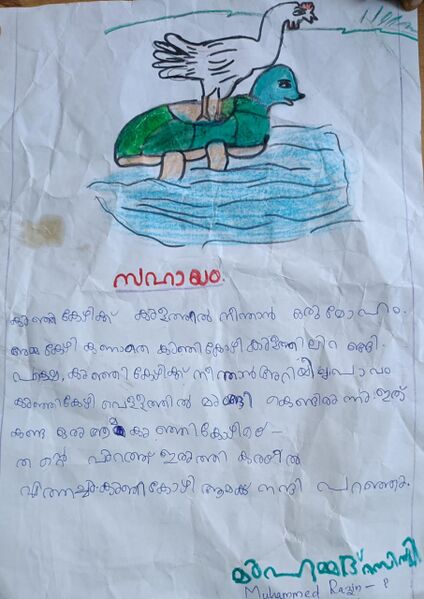 സഹായം.
കുഞ്ഞികോഴിക്ക് കുളത്തിൽ നീന്താൻ ഒരു മോഹം.
അമ്മ കോഴി കാണാതെ കുഞ്ഞികോഴി കുളത്തിലിറങ്ങി.
പക്ഷെ, കുഞ്ഞി കോഴിക്ക് നീന്താൻ അറിയില്ല പാവം
കുഞ്ഞികോഴി വെള്ളത്തിൽ മുങ്ങി കൊണ്ടിരുന്നു. ഇത്
കണ്ട ഒരു ആമ കുഞ്ഞികോഴിയെ -
തന്റെ പുറത്ത് ഇരുത്തി കരയിൽ
എത്തിച്ചു. കുഞ്ഞികോഴി ആമക്ക് നന്ദി പറഞ്ഞു.
മുഹമ്മദ് റസിൻ. പി
Muhammed Razin - P